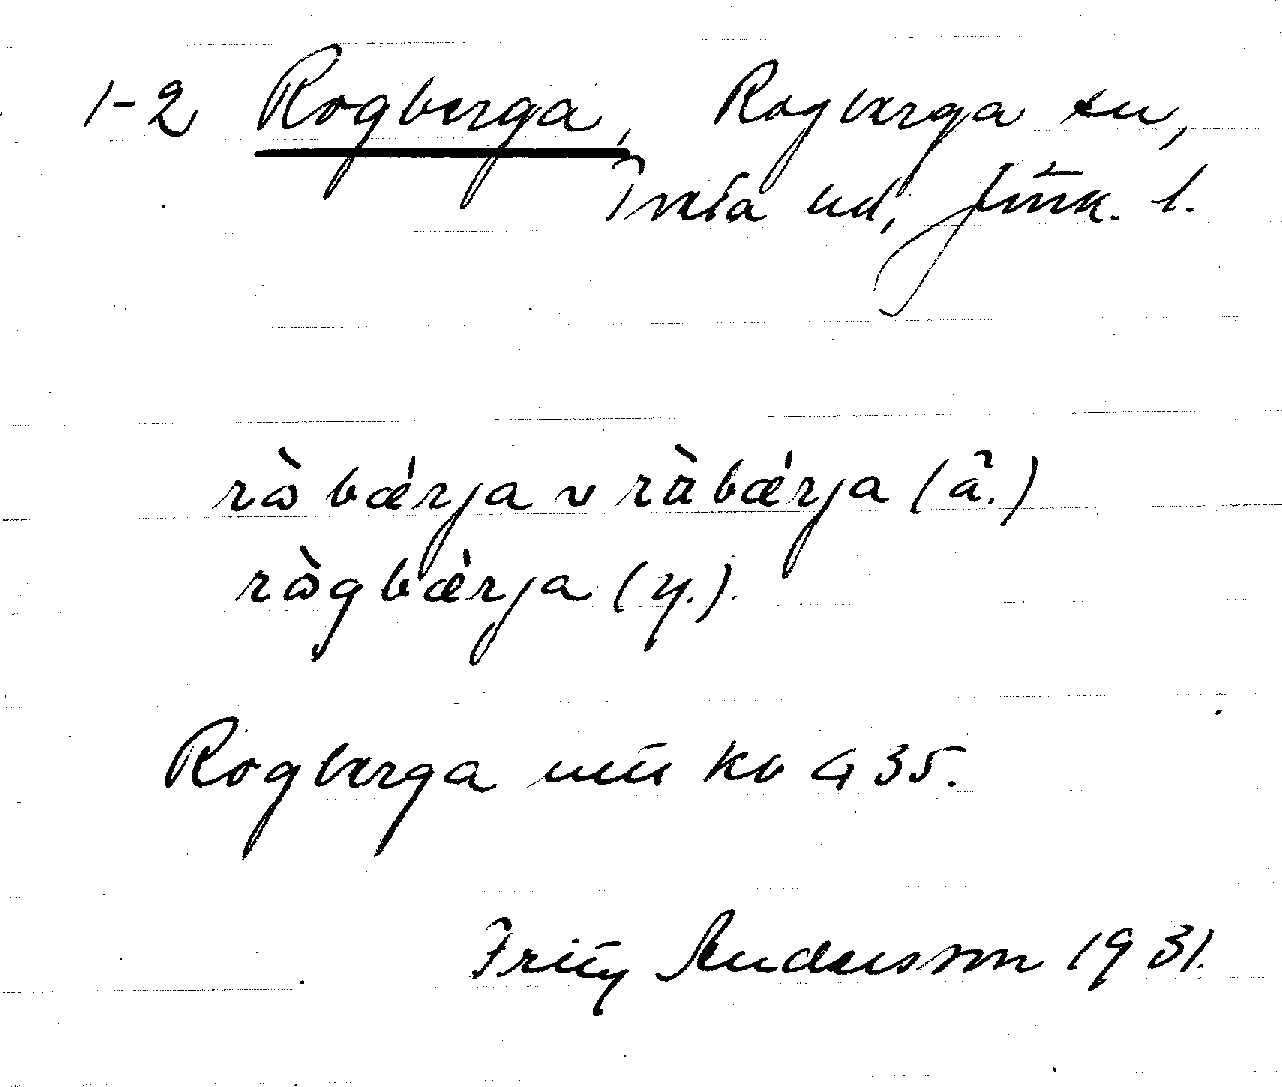 1-2 Rogberga, Rogberga sn,
Tveta hd, Jönk. l.
rò̀bǽrja v ràbǽrja (ä.)
rògbǽrja (y.)
Rogberga mtn kb 435.
Fritz Andersson 1931.